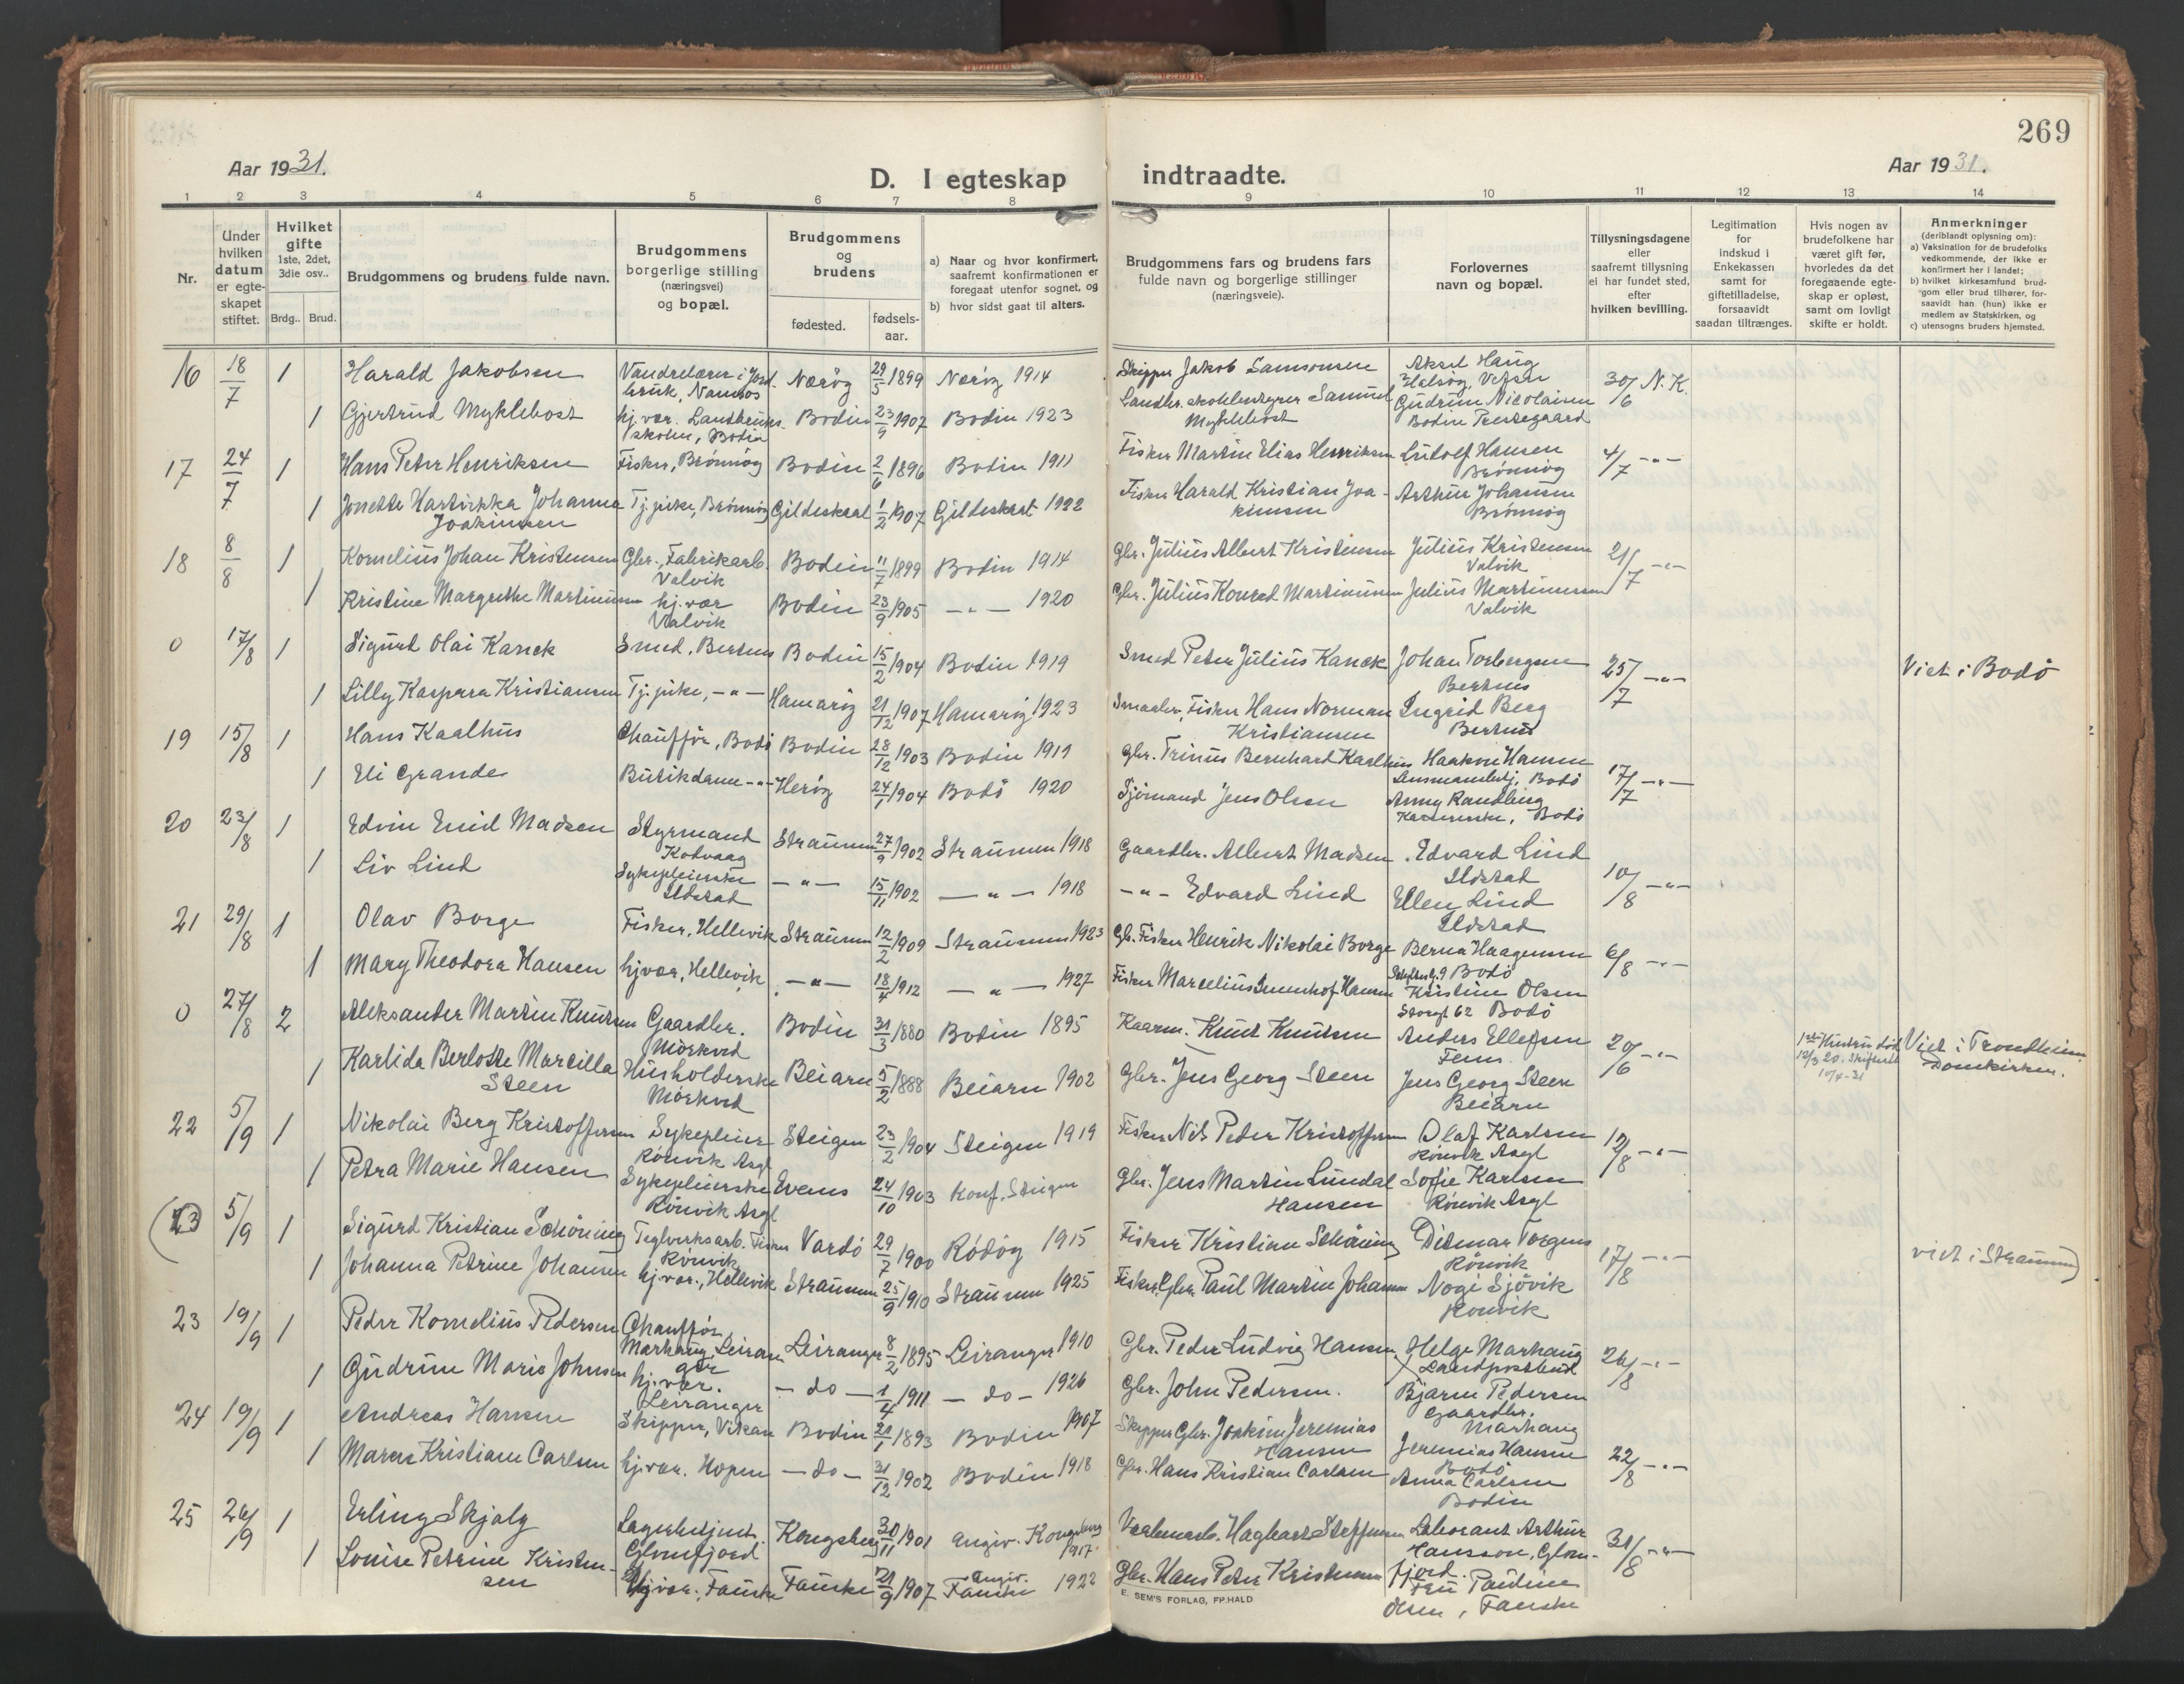 269
Aar 1931.
D. I egteskap indtraadte.
Aar 1931.
1 2 3 4 5 6 7 8 9 10 11 12 13 14
Nr.
Under hvilken datum er egteskapet stiftet.
Hvilket gifte 1ste, 2det, 3die osv..
Brdg.. Brud.
Brudgommens og brudens fulde navn.
Brudgommens borgerlige stilling (næringsvei) og bopæl.
Brudgommens og brudens
fødested.
fødsels-aar.
a) Naar og hvor konfirmert, saafremt konfirmationen er foregaat utenfor sognet, og
b) hvor sidst gaat til alters.
Brudgommens fars og brudens fars fulde navn og borgerlige stillinger (næringsveie).
Forlovernes navn og bopæl.
Tillysningsdagene eller saafremt tillysning ei har fundet sted, efter hvilken bevilling.
Legitimation for indskud i Enkekassen samt for giftetilladelse, forsaavidt saadan tiltrænges.
Hvis nogen av brudefolkene har været gift før, hvorledes da det foregaaende egteskap er opløst, samt om lovligt skifte er holdt.
Anmerkninger (deriblandt oplysning om):
a) Vaksination for de brudefolks vedkommende, der ikke er konfirmert her i landet;
b) hvilket kirkesamfund brudgom eller brud tilhører, forsaavidt han (hun) ikke er medlem av Statskirken, og
c) utensogns bruders hjemsted.
16 18/7 1 Harald Jakobsen Vandrelærer i Jordbruk, Namsos Nærøy 29/5 1899 Nærøy 1914 Skipper Jakob Samsonsen Aksel Haug Halsøy, Vefsn 30/6 N.K.
1 Gjertrud Myklebost hj.vær. Landbruksskolen, Bodin Bodin 23/9 1907 Bodin 1923 Landbr.skolebestyrer Samuel Myklebost Gudrun Nicolaisen Bodin Prestegaard
17 24/7 1 Hans Peter Henriksen Fisker, Brönnöy Bodin 2/6 1896 Bodin 1911 Fisker Martin Elias Henriksen Ludolf Hansen Brönnöy 4/7 -"-
1 Jonette Hartvikka Johanna Joakimsen Tj.pike, Brönnöy Gildeskaal 1/2 1907 Gildeskaal 1922 Fisker Harald Kristian Joakimsen Arthur Johansen Brönnöy
18 8/8 1 Kornelius Johan Kristensen Gbr., Fabrikarb. Valvik Bodin 11/7 1899 Bodin 1914 Gbr. Julius Albert Kristensen Julius Kristensen Valvik 21/7 -"-
1 Kristine Margrethe Martinussen hj.vær Valvik Bodin 23/9 1905 -"- 1920 Gbr. Julius Konrad Martinussen Julius Martinussen Valvik
0 17/8 1 Sigurd Olai Karick Smed, Bertnes Bodin 15/2 1904 Bodin 1919 Smed Peter Julius Karick Johan Torbergsen Bertnes 25/7 -"- Viet i Bodö
1 Lilly Kaspara Kristiansen Tj.pike, -"- Hamaröy 21/12 1907 Hamaröy 1923 Smaabr., Fisker Hans Norman Kristiansen Ingrid Berg Bertnes
19 15/8 1 Hans Kaalhus Chaufför, Bodö Bodin 28/12 1903 Bodin 1919 Gbr. Trinus Bernhard Kaalhus Haakon Hansen Lensmannbetj. Bodö 17/7 -"-
1 Eli Grande Butikdame -"- Heröy 24/1 1904 Bodö 1920 Sjömand Jens Olsen Anny Randberg Bodö
20 23/8 1 Edvin Emil Madsen Styrmand Kodvaag Straumen 27/9 1902 Straumen 1918 Gaardbr. Albert Madsen Edvard Lind Ildstad 10/8 -"-
1 Liv Lind Sykepleierske Ildstad -"- 15/11 1902 -"- 1918 -"- Edvard Lind Ellen Lind Ildstad
21 29/8 1 Olav Borge Fisker, Hellevik Straumen 12/2 1909 Straumen 1923 Gbr. Fisker Henrik Nikolai Borge Berna Haagensen Bodö 6/8 -"-
1 Mary Theodora Hansen hj.vær, Hellevik -"- 18/4 1912 -"- 1927 Fisker Marcelius Hansen Kristine Olsen Storgt 62 Bodö
0 27/8 2 Aleksander Martin Knutsen Gaardbr. Mörkved Bodin 31/3 1880 Bodin 1895 Kaarm. Knut Knutsen Anders Ellefsen 20/6 -"- 1ste Hustru död 12/3 20. Skifte 10/4-31 Viet i Trondheim Domkirken.
1 Karlida Berlotte Marsilla Steen Husholderske Mörkved Beiarn 5/2 1888 Beiarn 1902 Gbr. Jens Georg Steen Jens Georg Steen Beiarn
22 5/9 1 Nikolai Berg Kristoffersen Sykepleier Rönvik Asyl Steigen 23/2 1904 Steigen 1919 Fisker Nils Peder Kristoffersen Olaf Karlsen Rönvik Asyl 12/8 -"-
1 Petra Marie Hansen Sykepleierske Rönvik Asyl Evenes 24/10 1903 Konf. Steigen Gbr. Jens Martin Lundal Hansen Sofie Karlsen Rönvik Asyl
(23) 5/9 1 Sigurd Kristian Schöning Teglverksarb. Fisker Rönvik Vardö 29/7 1900 Rödöy 1915 Fisker Kristian Schöning Ditmar Torgens Rönvik 17/8 -"- viet i Straumen)
1 Johanna Petrine Johansen hj.vær., Hellevik Straumen 25/9 1910 Straumen 1925 Fisker, Gbr. Paul Martin Johansen Nogi Sjövik Rönvik
23 19/9 1 Peder Kornelius Pedersen Chaufför Marhaug, Leiranger Leiranger 8/2 1895 Leiranger 1910 Gbr. Peder Ludvig Hansen Helge Marhaug Landpostbud 26/8 -"-
1 Gudrun Marie Johnsen hj.vær. Leiranger -do- 1/4 1911 -do- 1926 Gbr. John Pedersen. Bjarne Pedersen Gaardbr. Marhaug
24 19/9 1 Andreas Hansen Skipper, Vikan Bodin 21/1 1893 Bodin 1907 Skipper Gbr. Joakim Jeremias Hansen Jeremias Hansen Bodö 22/8 -"-
1 Maren Kristiane Carlsen hj.vær. Hopen -do- 31/12 1902 Bodin 1918 Gbr. Hans Kristian Carlsen Anna Carlsen Bodin
25 26/9 1 Erling Skjalg Lagerbetjent Glomfjord Kongsberg 30/11 1901 angiv. Kongsberg 1917. Haghart Steffensen Laborant Arthur Hansson, Glomfjord. 31/8 -"-
1 Louise Petrine Kristensen hj.vær., Fauske Fauske 21/9 1907 angiv. Fauske 1922 Gbr. Hans Peter Kristensen Fru Pauline Olsen, Fauske
E. SEM'S FORLAG, FR.HALD